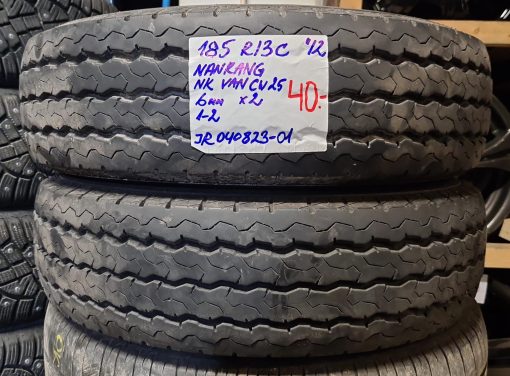 185 R13C '12
NANKANG
NK VAN CW25
6mm x2
40.-
1-2
JR040823-01